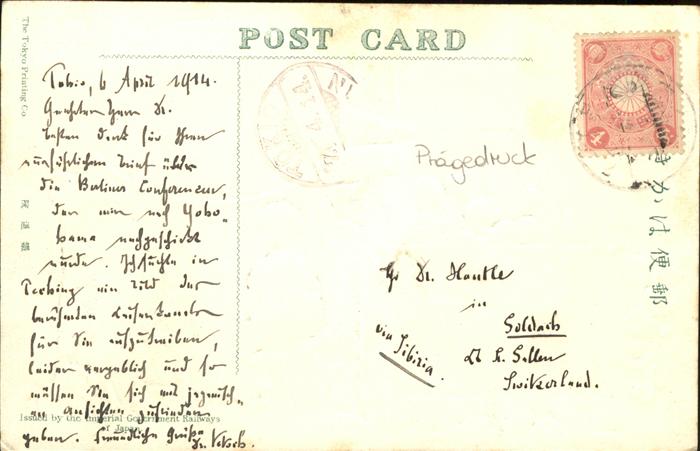 POST CARD
The Tokyo Printing Co.
Tokio, 6 April 1914.
Geehrter Herr Dr.
besten Dank für Ihren
ausführlichen Brief über
die Berliner Conferenzen,
der mir nach Yoko-
hama nachgeschickt
wurde. Ich suchte in
Peking ein Bild der
berühmten
für Sie aufzutreiben,
leider vergeblich und so
müssen Sie sich mit japanisch-
en Ansichten zufrieden
geben. Freundliche Grüße
Dr.
Issued by the Imperial Government Railways
of Japan
Prägedruck
Dr.
in
Goldach
Ct St. Gallen
Switzerland.
via Sibiria.
きかは便郵
4